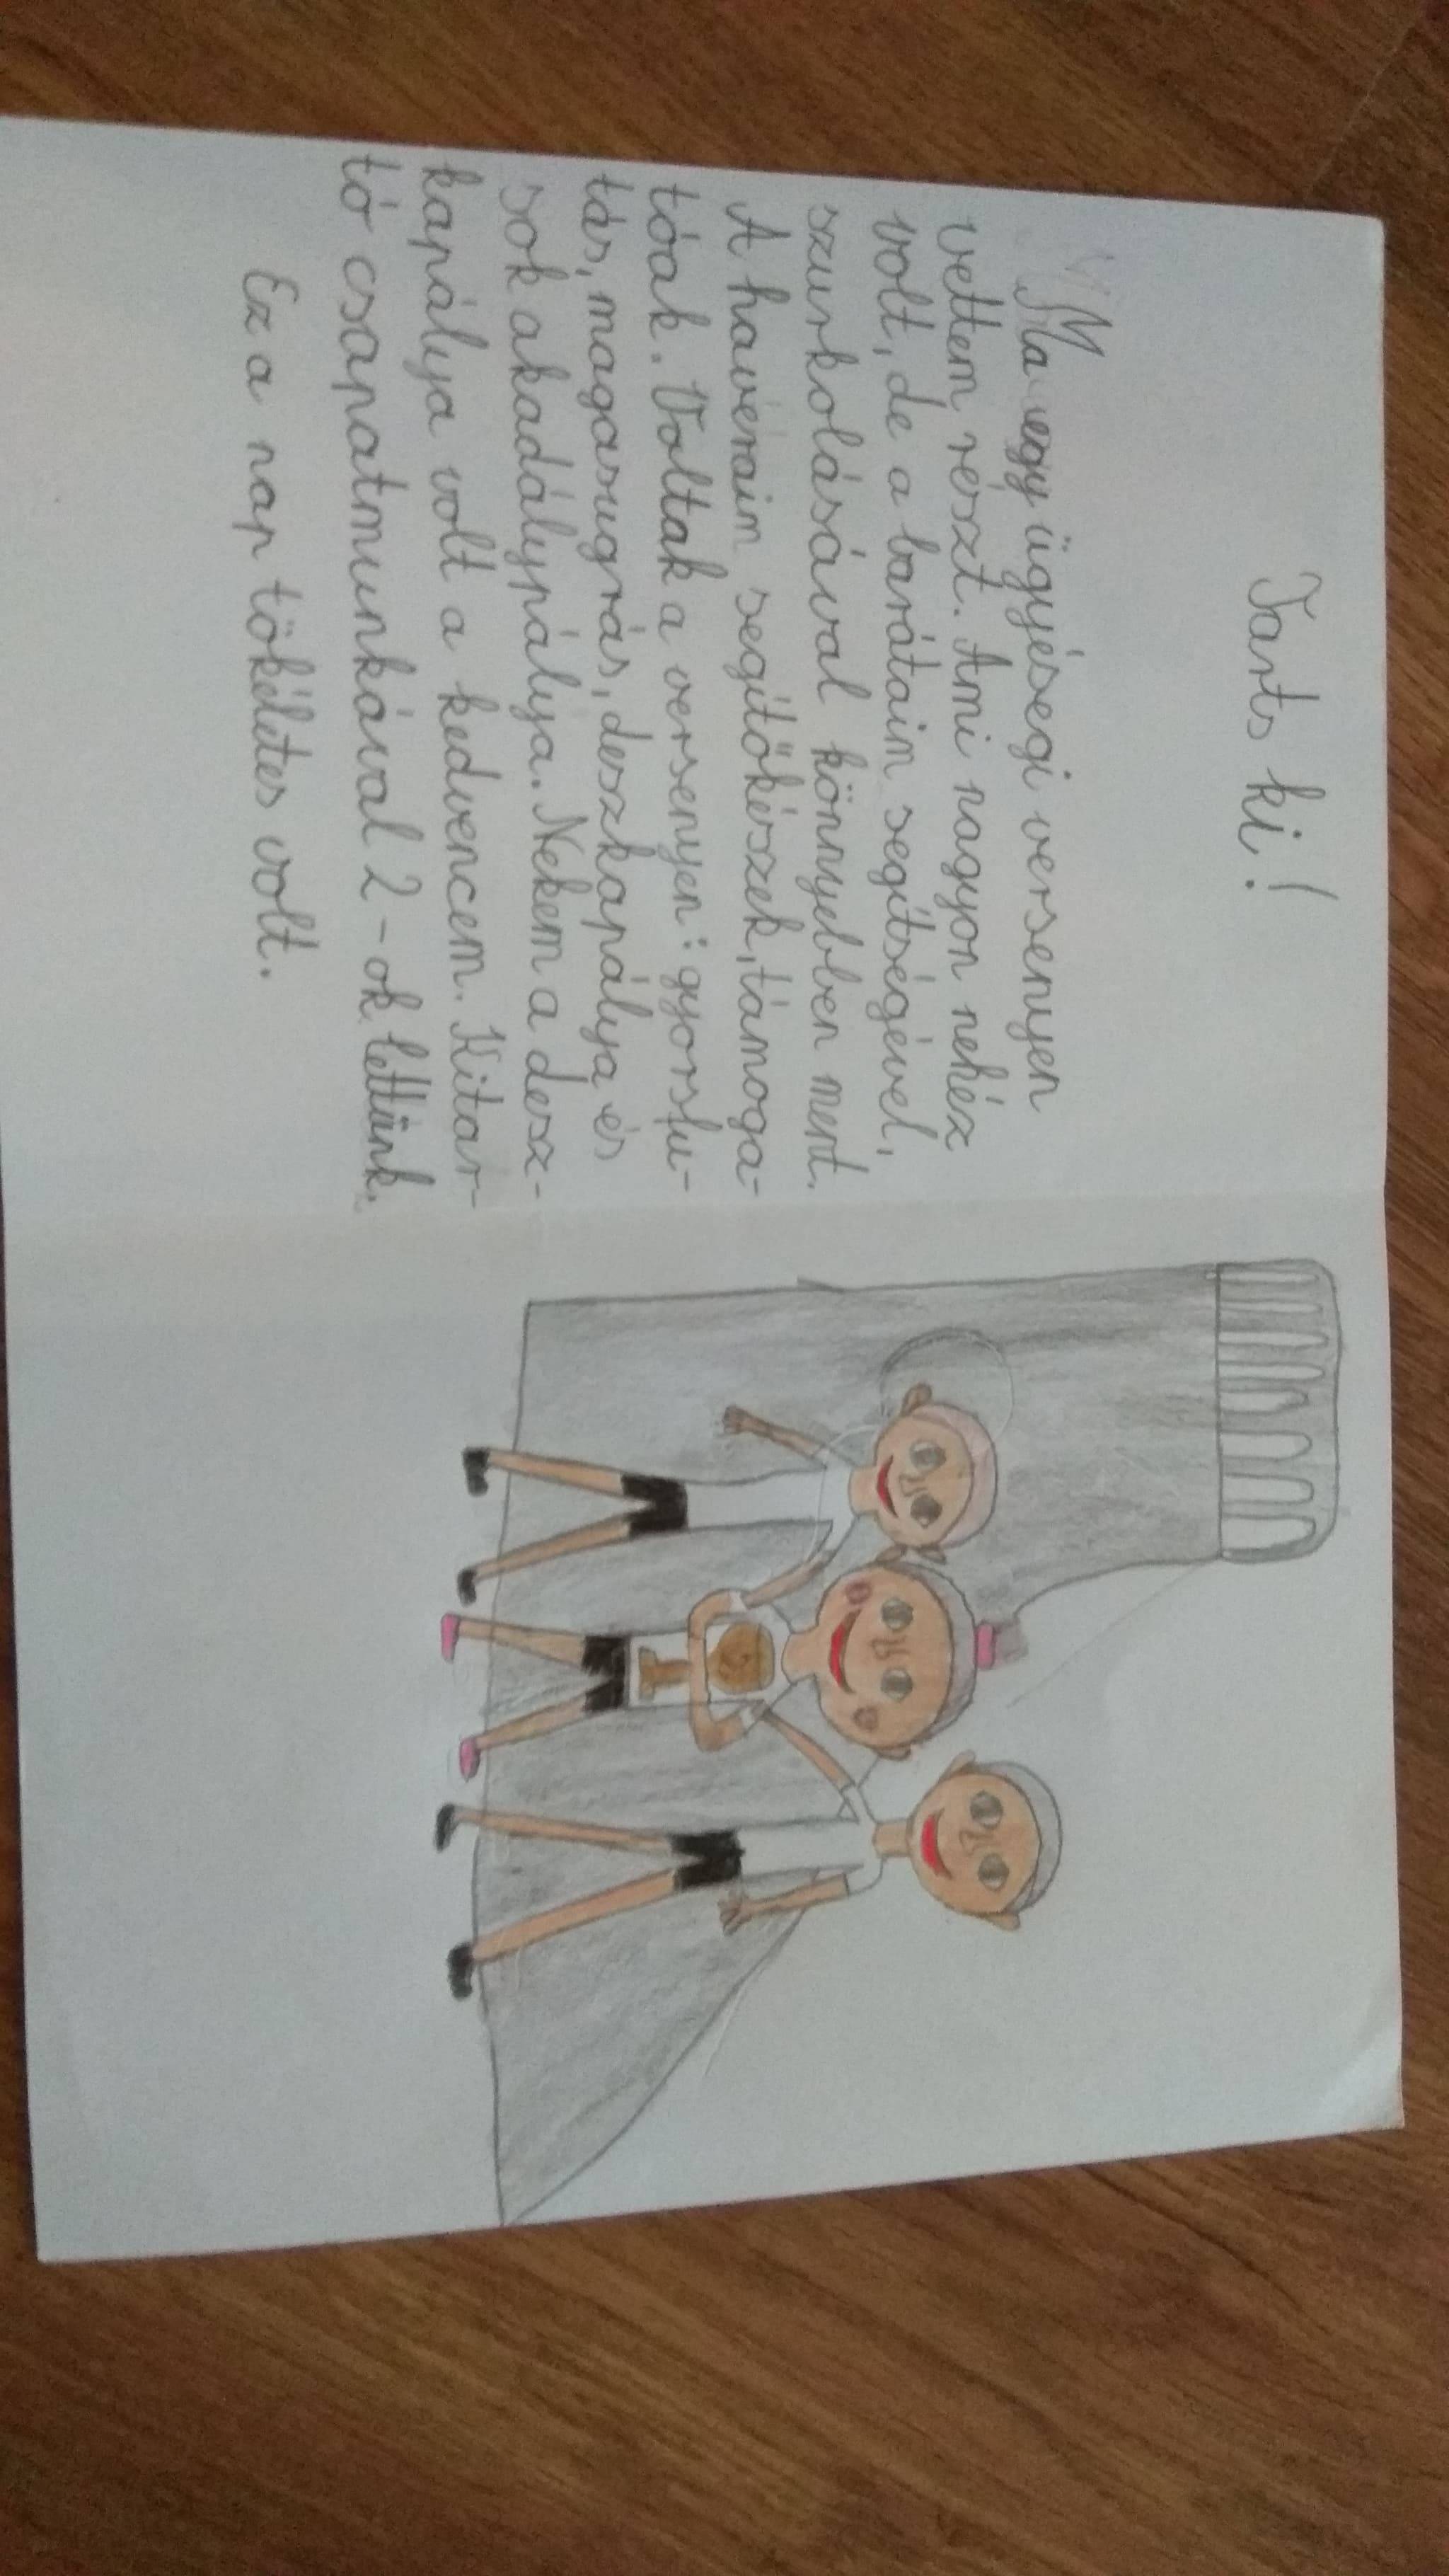 Tarts ki!
Ma egy ügyességi versenyen
vettem részt. Ami nagyon nehéz
volt, de a barátaim segítségével,
szurkolásával könnyebben ment.
A haveraim segítőkészek, támoga-
tóak. Voltak a versenyen: gyorsfu-
tás, magasugrás, deszkapálya és
sok akadálypálya. Nekem a desz-
kapálya volt a kedvencem. Kitar-
tó csapatmunkával 2-ok lettünk.
Ez a nap tökéletes volt.